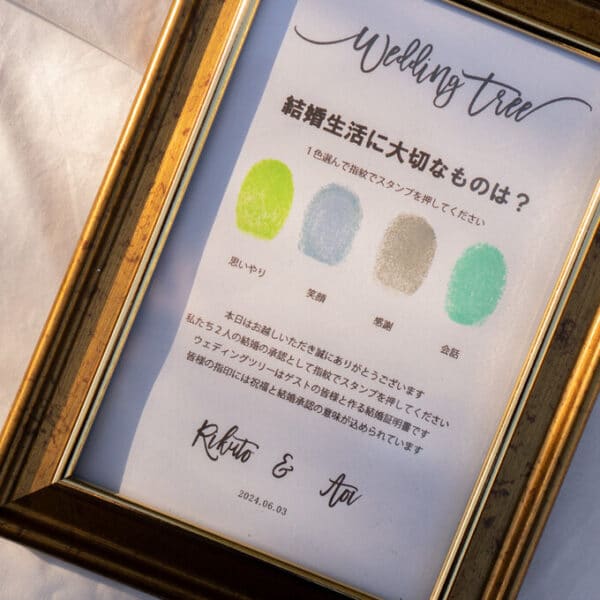 Wedding tree
結婚生活に大切なものは？
1色選んで指紋でスタンプを押してください
思いやり
笑顔
感謝
会話
本日はお越しいただき誠にありがとうございます
私たち２人の結婚の承認として指紋でスタンプを押してください
ウェディングツリーはゲストの皆様と作る結婚証明書です
皆様の指印には祝福と結婚承認の意味が込められています
Rikuto & Aoi
2024.06.03